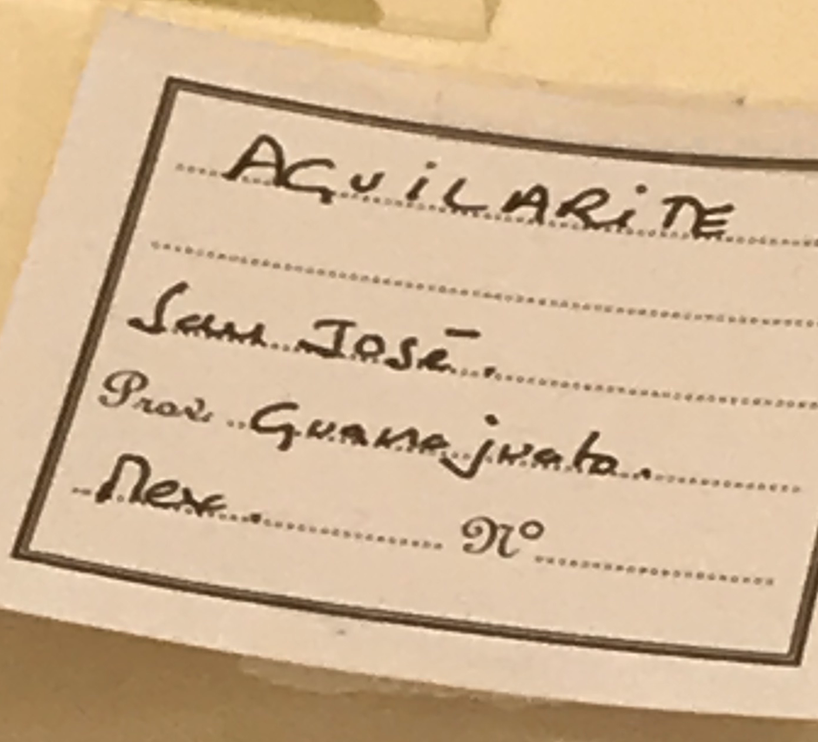 AGUiLARiTE
San José.
Prov. Guanajuato.
Mex. Nº